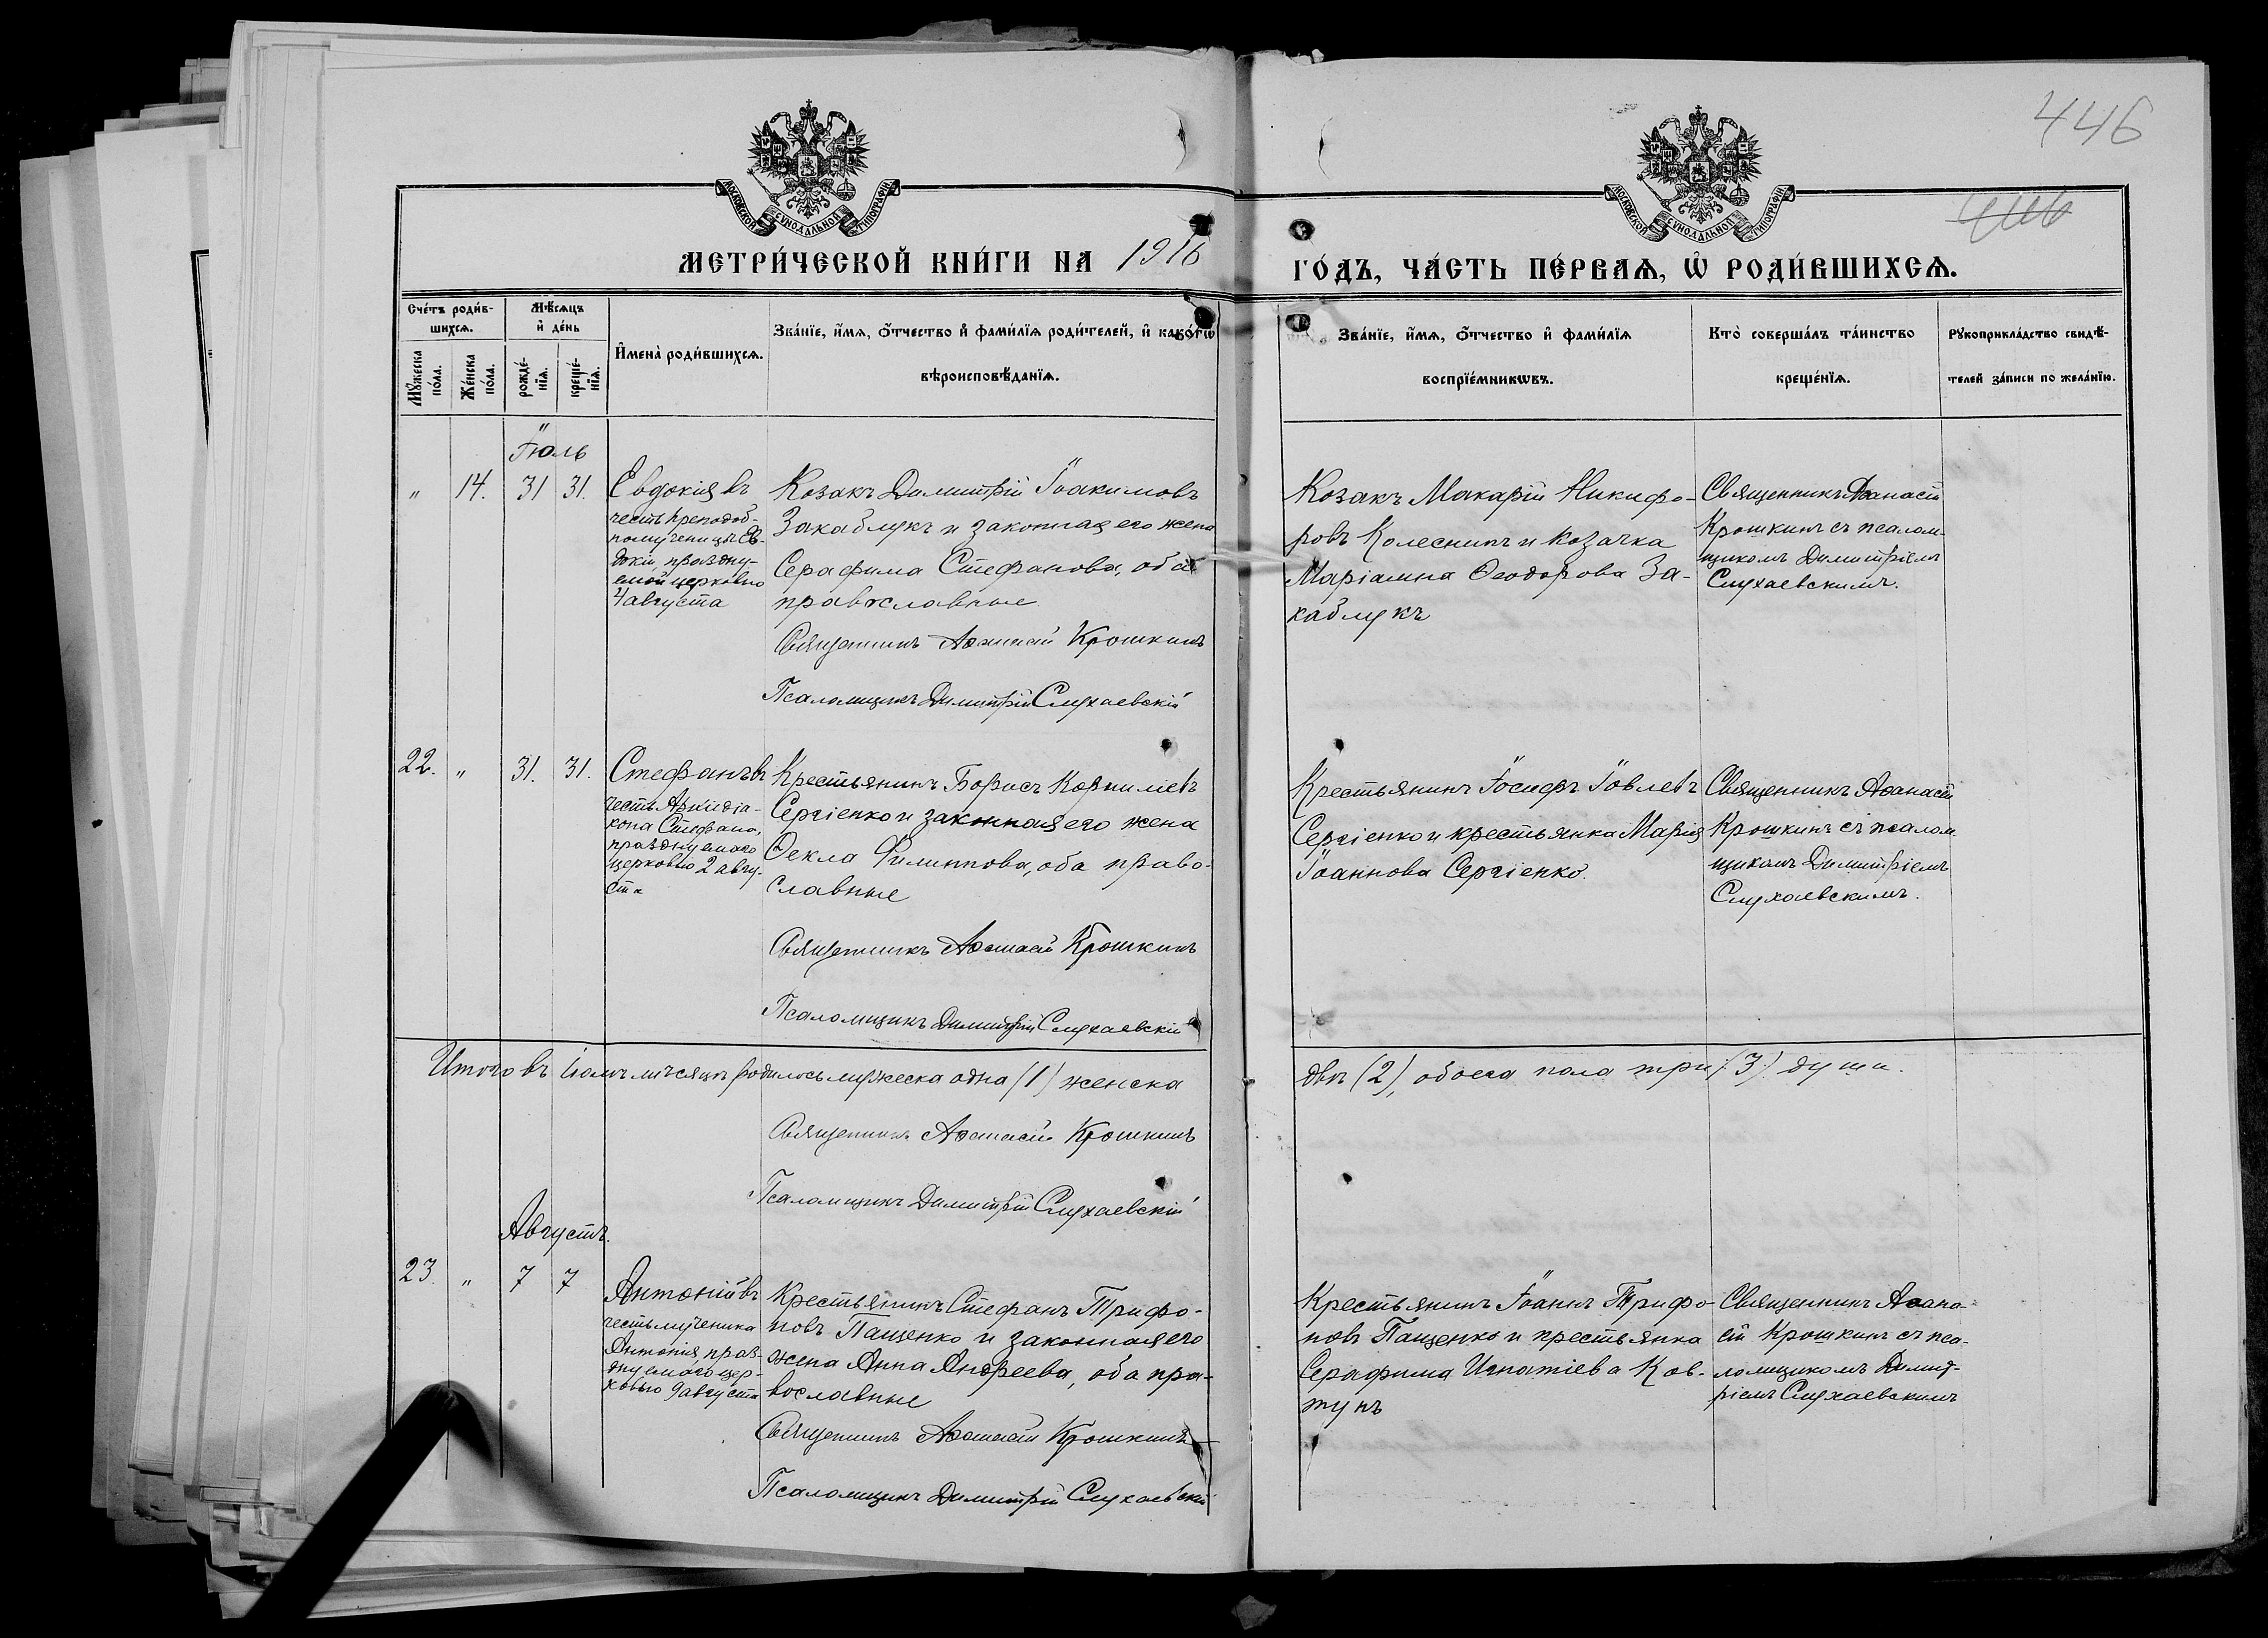 446
446
МОСКОВСКОЙ СУНОДАЛЬНОЙ ТИПОГРАФІИ
МОСКОВСКОЙ СУНОДАЛЬНОЙ ТИПОГРАФІИ
МЕТРИ́ЧЕСКОЙ КНИ́ГИ НА 1916
ГО́ДЪ, ЧА́СТЬ ПЕ́РВАѦ, Ѡ҆ РОДИ́ВШИХСѦ.
Сче́тъ роди́в-
шихсѧ.
Мѣ́сѧцъ
и҆ де́нь
Мꙋ́жеска
по́ла.
Же́нска
по́ла.
рожде́-
нїѧ.
креще́-
нїѧ.
И҆мена̀ роди́вшихсѧ.
Зва́нїе, и҆́мѧ, ѻ҆́тчество и҆ фами́лїѧ роди́телей, и҆ како́гѡ
вѣроисповѣ́данїѧ.
Зва́нїе, и҆́мѧ, ѻ҆́тчество и҆ фами́лїѧ
воспрїе́мникѡвъ.
Кто̀ соверша́лъ та́инство
креще́нїѧ.
Рꙋкоприкла́дство свидѣ́-
телей за́писи по жела́нїю.
Іюль
" 14. 31 31.
Евдокія въ
честь преподоб-
номученицы Ев-
докіи, праздну-
емой церковью
4 августа
Козакъ Димитрій Іоакимовъ
Закаблукъ и законная его жена
Серафима Стефанова, оба
православные
Священникъ Аѳанасій Крошкинъ
Псаломщикъ Димитрій Слухаевскій
Козакъ Макарій Никифо-
ровъ Колесникъ и козачка
Маріамна Ѳеодорова За-
каблукъ
Священникъ Аѳанасій
Крошкинъ съ псалом-
щикомъ Димитріемъ
Слухаевскимъ.
22. " 31. 31.
Стефанъ въ
честь Архидіа-
кона Стефана,
празднуемаго
церковью 2 авгу-
ста
Крестьянинъ Борисъ Корниліевъ
Сергіенко и законная его жена
Ѳекла Филиппова, оба право-
славные
Священникъ Аѳанасій Крошкинъ
Псаломщикъ Димитрій Слухаевскій
Крестьянинъ Іосифъ Іовлевъ
Сергіенко и крестьянка Марія
Іоаннова Сергіенко.
Священникъ Аѳанасій
Крошкинъ съ псалом-
щикомъ Димитріемъ
Слухаевскимъ.
Итого въ іюлѣ мѣсяцѣ родилось мужеска одна (1) женска
двѣ (2), обоега пола три (3) души.
Священникъ Аѳанасій Крошкинъ
Псаломщикъ Димитрій Слухаевскій
Августъ.
23. " 7 7
Антоній въ
честь мученика
Антонія праз-
днуемаго цер-
ковью 9 августа
Крестьянинъ Стефанъ Трифо-
новъ Пащенко и законная его
жена Анна Андреева, оба пра-
вославные
Священникъ Аѳанасій Крошкинъ
Псаломщикъ Димитрій Слухаевскій
Крестьянинъ Іоаннъ Трифо-
новъ Пащенко и крестьянка
Серафима Игнатіева Ков-
тунъ
Священникъ Аѳана-
сій Крошкинъ съ пса-
ломщикомъ Димит-
ріемъ Слухаевскимъ